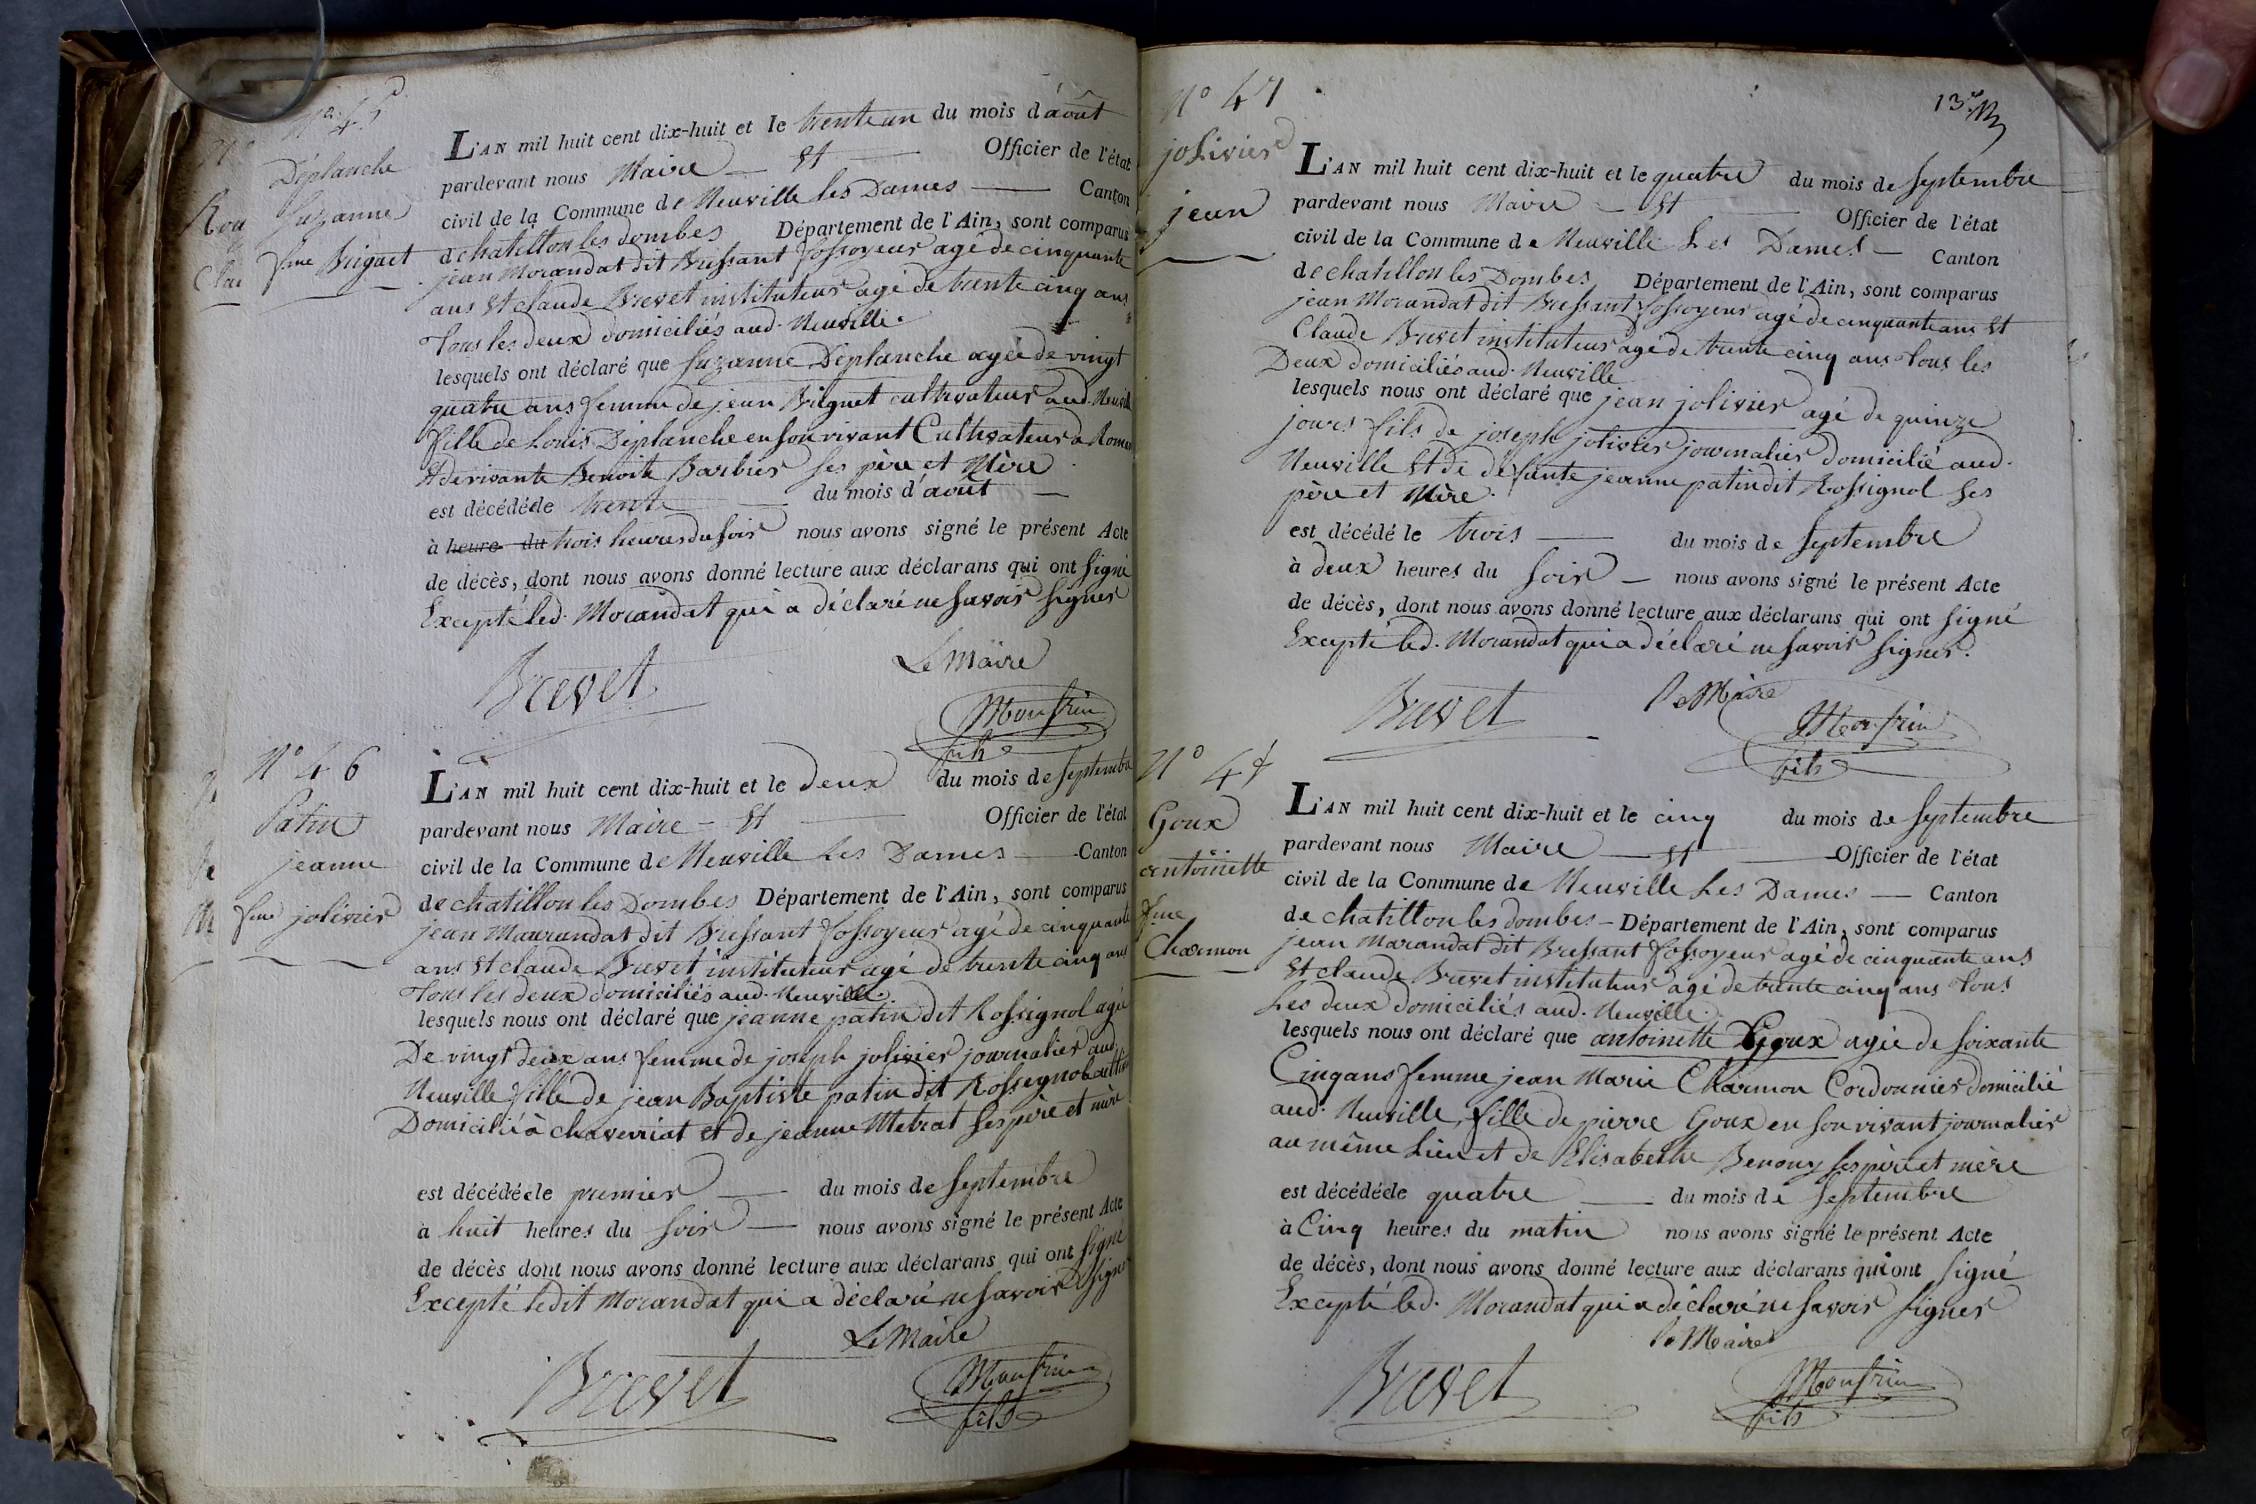 N° 45
Déplanche
Suzanne
fme Briguet
L'AN mil huit cent dix-huit et le trente un du mois d'août
pardevant nous Maire — Et — Officier de l'état
civil de la Commune de Neuville les Dames — Canton
de chatillon les dombes Département de l'Ain, sont comparus
jean Morandat dit Bressant fossoyeur agé de cinquante
ans Et claude Brevet instituteur agé de trente cinq ans
tous les deux domiciliés aud. Neuville.
lesquels ont déclaré que Suzanne Déplanche agée de vingt
quatre ans femme de jean Briguet cultivateur aud. Neuville
fille de Louis Déplanche en son vivant Cultivateur à
Et de vivante Benoite Barbier ses père et Mère
est décédée le trente du mois d'août —
à heure du trois heures du soir nous avons signé le présent Acte
de décès, dont nous avons donné lecture aux déclarans qui ont signé
Excepté led. Morandat qui a déclaré ne savoir signer
Le Maire
Brevet
Monfrin
fils
N° 46
Patin
jeanne
fme jolivier
L'AN mil huit cent dix-huit et le deux du mois de septembre
pardevant nous Maire — Et — Officier de l'état
civil de la Commune de Neuville Les Dames — Canton
de chatillon les Dombes Département de l'Ain, sont comparus
jean Maurandat dit Bressant fossoyeur agé de cinquante
ans Et claude Brevet instituteur agé de trente cinq ans
tous les deux domiciliés aud. Neuville.
lesquels nous ont déclaré que jeanne patin dit Rossignol agée
De vingt deux ans femme de joseph jolivier journalier aud.
Neuville fille de jean Baptiste patin dit Rossignol
Domicilié à chaveyriat et de jeanne Metrat ses père et mère
est décédée le premier — du mois de septembre
à huit heures du soir — nous avons signé le présent Acte
de décès dont nous avons donné lecture aux déclarans qui ont signé
Excepté ledit Morandat qui a déclaré ne savoir signer
Le Maire
Brevet
Monfrin
fils
N° 47
jolivier
jean
L'AN mil huit cent dix-huit et le quatre du mois de septembre
pardevant nous Maire — Et — Officier de l'état
civil de la Commune de Neuville Les Dames — Canton
de chatillon les Dombes Département de l'Ain, sont comparus
jean Morandat dit Bressant fossoyeur agé de cinquante ans Et
Claude Brevet instituteur agé de trente cinq ans tous les
Deux domiciliés aud. Neuville
lesquels nous ont déclaré que jean jolivier agé de quinze
jours fils de joseph jolivier journalier domicilié aud.
Neuville Et de défunte jeanne patin dit Rossignol ses
père et Mère.
est décédé le trois — du mois de septembre
à deux heures du soir — nous avons signé le présent Acte
de décès, dont nous avons donné lecture aux déclarans qui ont signé
Excepté led. Morandat qui a déclaré ne savoir signer.
Le Maire
Brevet
Monfrin
fils
Goux
antoinette
fme
Charmon
L'AN mil huit cent dix-huit et le cinq du mois de septembre
pardevant nous Maire — Et — Officier de l'état
civil de la Commune de Neuville Les Dames — Canton
de chatillon les dombes — Département de l'Ain, sont comparus
jean Marandat dit Bressant fossoyeur agé de cinquante ans
Et claude Brevet instituteur agé de trente cinq ans tous
Les deux domiciliés aud. Neuville.
lesquels nous ont déclaré que antoinette Goux agée de soixante
Cinq ans femme jean Marie Charmon Cordonnier domicilié
aud. Neuville, fille de pierre Goux en son vivant journalier
au même Lieu et de Elisabethe Benony ses père et mère
est décédée le quatre — du mois de septembre
à Cinq heures du matin nous avons signé le présent Acte
de décès, dont nous avons donné lecture aux déclarans qui ont signé
Excepté led. Morandat qui a déclaré ne savoir signer
Le Maire
Brevet
Monfrin
fils